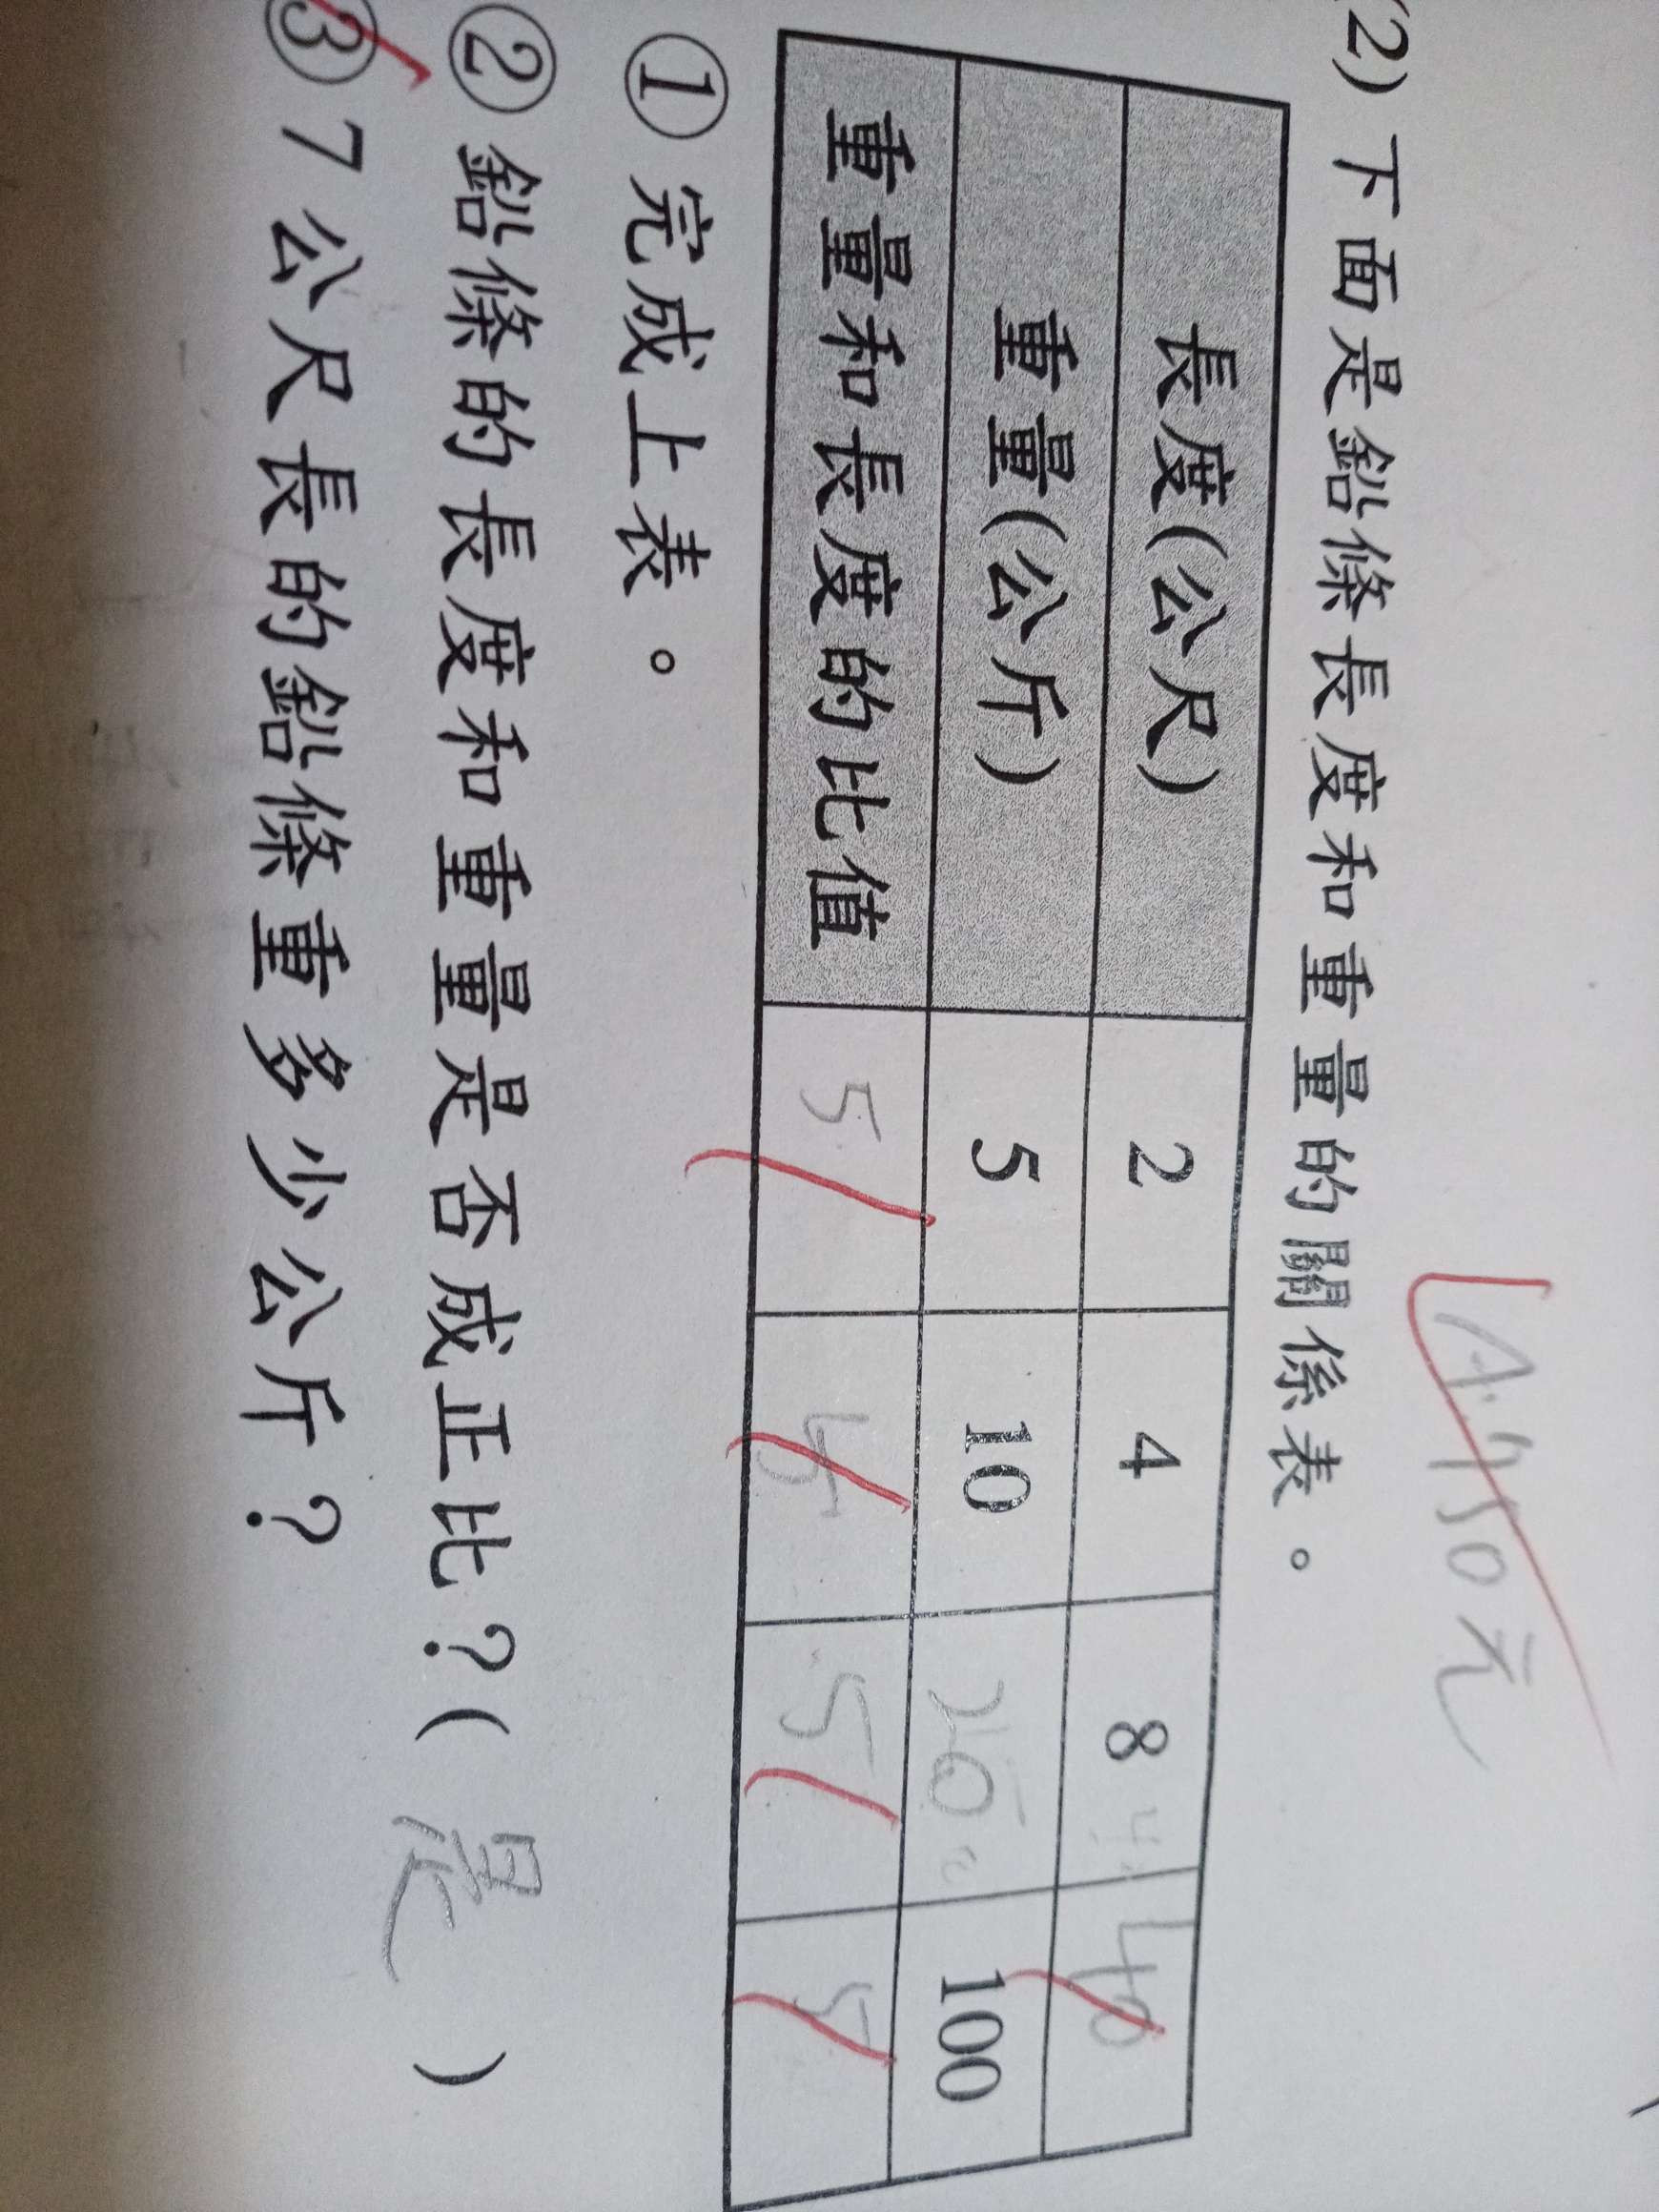 A：450元
(2) 下面是鉛條長度和重量的關係表。
長度(公尺) 2 4 8 40
重量(公斤) 5 10 20 100
重量和長度的比值 5 5 5
① 完成上表。
② 鉛條的長度和重量是否成正比？( 是 )
③ 7公尺長的鉛條重多少公斤？